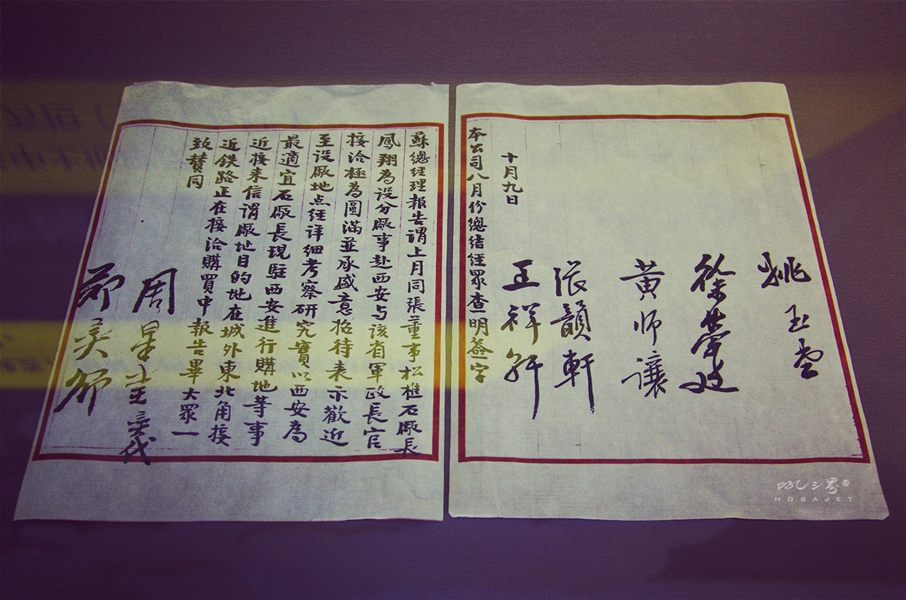 姚玉
徐榮廷
黃師讓
張韻軒
十月九日
本公司八月份總結經眾查明簽字
蘇總經理報告謂上月同張董事松樵石廠長
鳳翔為設分廠事赴西安與該省軍政長官
接洽極為圓滿並承盛意招待表示歡迎
至設廠地点經详細考察研究實以西安為
最適宜石廠長現駐西安進行購地等事
近接来信謂廠址目的地在城外東北角接
近鉄路正在接洽購買中報告畢大眾一
致賛同
周星代
HOSAJET